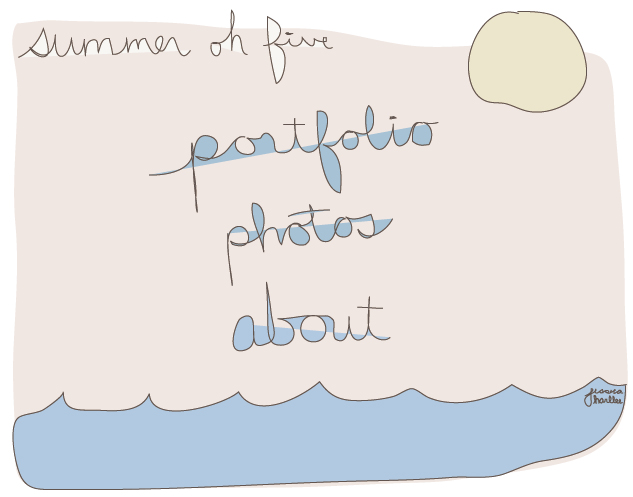 summer oh five
portfolio
photos
about
jessica